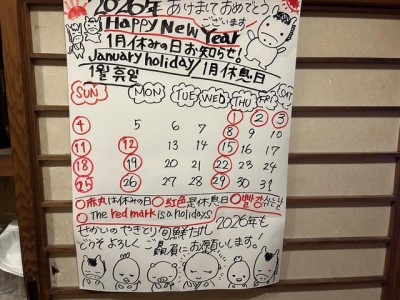 2026年あけましておめでとう
ございます
HAPPY NEW YEAR
1月休みの日お知らせ!
January holiday/1月休息日
1월 휴일
SUN MON TUE WED THU FRI SAT
1 2 3
4 5 6 7 8 9 10
11 12 13 14 15 16 17
18 19 20 21 22 23 24
25 26 27 28 29 30 31
○赤丸は休みの日 ○紅色是休息日 ○빨강
○The red mark is a holidays
2026年も
せかいのやきとり
どうぞよろしくご贔屓にお願いします。